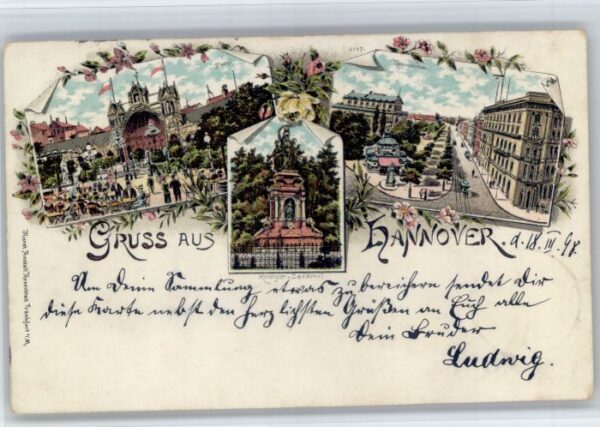 2157.
Krieger-Denkmal
GRUSS AUS HANNOVER. d. 18. III. 98.
Um Deine Sammlung etwas zu bereichern sendet Dir
diese Karte nebst den herzlichsten Grüßen an Euch alle
Dein Bruder
Ludwig.
Frankfurt a/M.